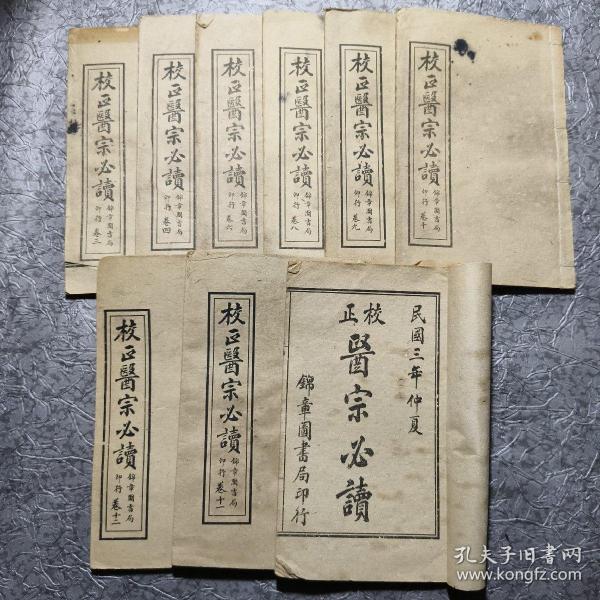 校正醫宗必讀 錦章圖書局印行 卷三
校正醫宗必讀 錦章圖書局印行 卷四
校正醫宗必讀 錦章圖書局印行 卷六
校正醫宗必讀 錦章圖書局印行 卷八
校正醫宗必讀 錦章圖書局印行 卷九
校正醫宗必讀 錦章圖書局印行 卷十
校正醫宗必讀 錦章圖書局印行 卷十二
校正醫宗必讀 錦章圖書局印行 卷十一
民國三年仲夏
校正
醫宗必讀
錦章圖書局印行
孔夫子旧书网
www.kongfz.com